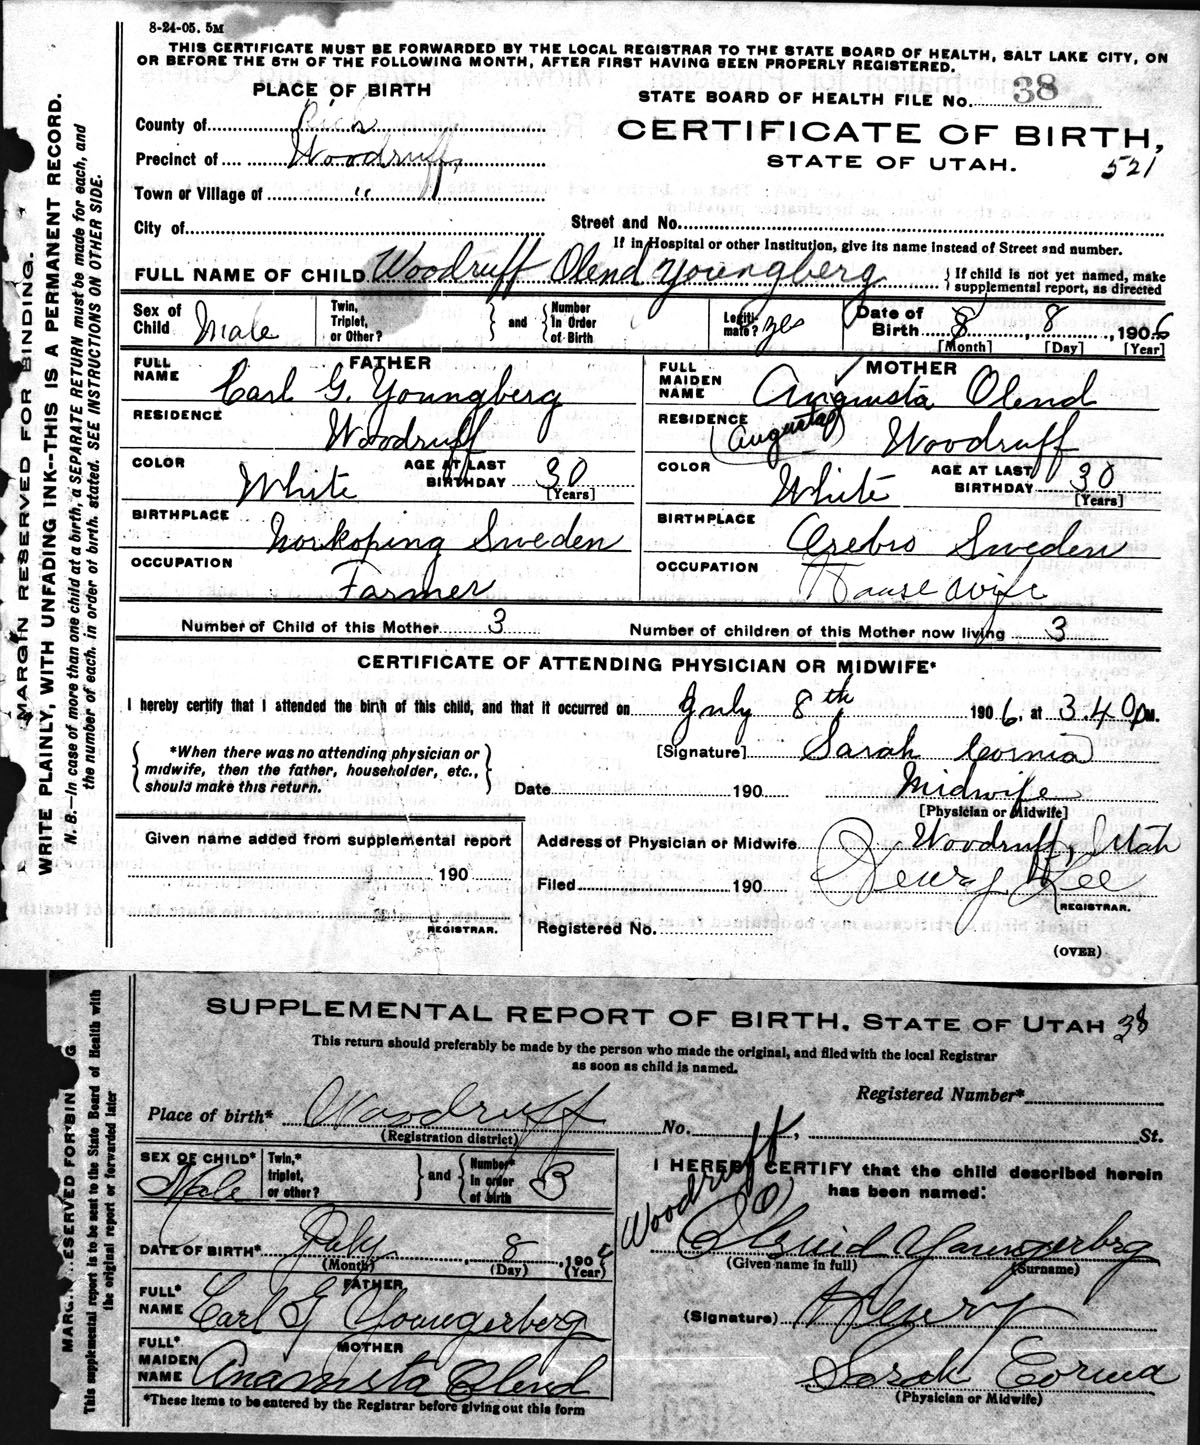 8-24-05. 5M
THIS CERTIFICATE MUST BE FORWARDED BY THE LOCAL REGISTRAR TO THE STATE BOARD OF HEALTH, SALT LAKE CITY, ON
OR BEFORE THE 5TH OF THE FOLLOWING MONTH, AFTER FIRST HAVING BEEN PROPERLY REGISTERED.
MARGIN RESERVED FOR BINDING.
WRITE PLAINLY, WITH UNFADING INK--THIS IS A PERMANENT RECORD.
N. B.—In case of more than one child at a birth, a SEPARATE RETURN must be made for each, and
the number of each, in order of birth, stated. SEE INSTRUCTIONS ON OTHER SIDE.
PLACE OF BIRTH
STATE BOARD OF HEALTH FILE No. 38
County of Rich
CERTIFICATE OF BIRTH,
STATE OF UTAH.
521
Precinct of Woodruff
Town or Village of "
City of
Street and No.
If in Hospital or other Institution, give its name instead of Street and number.
FULL NAME OF CHILD Woodruff Olend Youngberg
If child is not yet named, make
supplemental report, as directed
Sex of Child Male
Twin, Triplet, or Other?
and
Number In Order of Birth
Legitimate? yes
Date of Birth 8 8 1906
[Month] [Day] [Year]
FATHER
FULL NAME Carl G. Youngberg
RESIDENCE Woodruff
COLOR White
AGE AT LAST BIRTHDAY 30
[Years]
BIRTHPLACE Norkoping Sweden
OCCUPATION Farmer
MOTHER
FULL MAIDEN NAME Angusta Olend
RESIDENCE (Augusta) Woodruff
COLOR White
AGE AT LAST BIRTHDAY 30
[Years]
BIRTHPLACE Orebro Sweden
OCCUPATION House wife
Number of Child of this Mother 3
Number of children of this Mother now living 3
CERTIFICATE OF ATTENDING PHYSICIAN OR MIDWIFE*
I hereby certify that I attended the birth of this child, and that it occurred on July 8th 1906, at 3.40 PM.
*When there was no attending physician or
midwife, then the father, householder, etc.,
should make this return.
[Signature] Sarah Cornia
Date 190
Midwife
[Physician or Midwife]
Given name added from supplemental report
190
REGISTRAR.
Address of Physician or Midwife Woodruff, Utah
Filed 190
Henry Lee
REGISTRAR.
Registered No.
(OVER)
SUPPLEMENTAL REPORT OF BIRTH. STATE OF UTAH 38
This return should preferably be made by the person who made the original, and filed with the local Registrar
as soon as child is named.
This supplemental report is to be sent to the State Board of Health with
the original report or forwarded later
Registered Number*
Place of birth* Woodruff
(Registration district)
No. , St.
SEX OF CHILD* Male
Twin,* triplet, or other?
and
Number* In order of birth 3
DATE OF BIRTH* July 8 1906
(Month) (Day) (Year)
FATHER
FULL* NAME Carl G Youngerberg
MOTHER
FULL* MAIDEN NAME Olend
*These items to be entered by the Registrar before giving out this form
I HEREBY CERTIFY that the child described herein
has been named:
Woodruff
Youngerberg
(Given name in full) (Surname)
(Signature) Henry
Sarah Cornia
(Physician or Midwife)